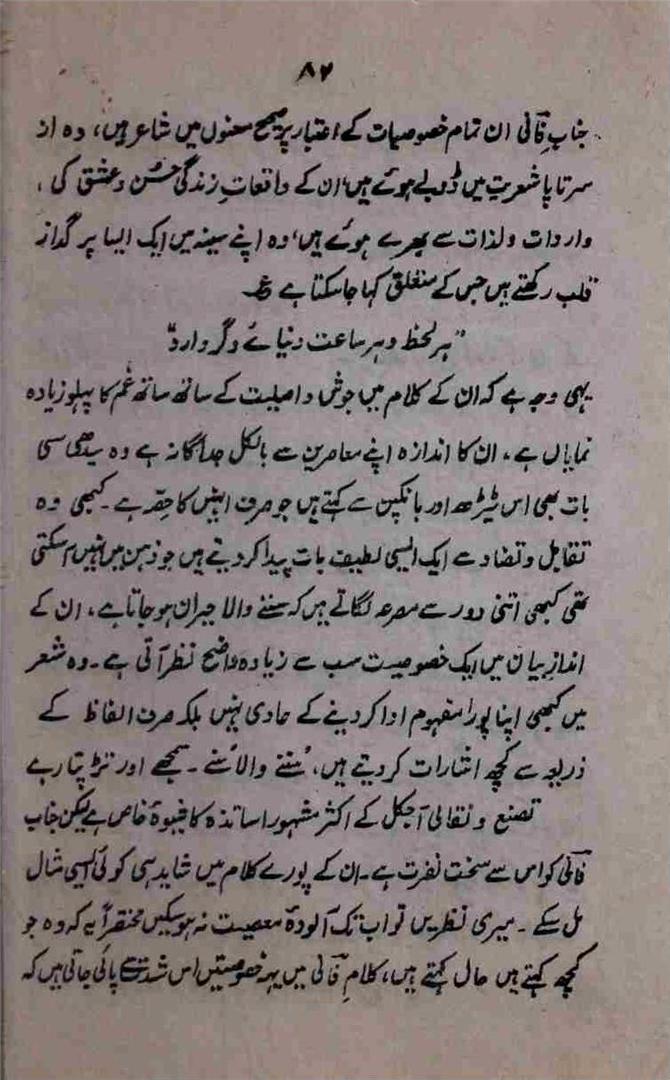 ۸۲
جنابِ فانی ان تمام خصوصیات کے اعتبار پر صحیح معنوں میں شاعر ہیں، وہ از
سر تا پا شعریت میں ڈوبے ہوئے ہیں، ان کے واقعاتِ زندگی حسن و عشق کی،
واردات و لذات سے بھرے ہوئے ہیں، وہ اپنے سینہ میں ایک ایسا پر گداز
قلب رکھتے ہیں جس کے متعلق کہا جا سکتا ہے ع
"ہر لحظ و ہر ساعت دنیائے دگر دارد"
یہی وجہ ہے کہ ان کے کلام میں جوش و اصلیت کے ساتھ ساتھ غم کا پہلو زیادہ
نمایاں ہے، ان کا اندازہ اپنے معاصرین سے بالکل جداگانہ ہے وہ سیدھی سی
بات بھی اس ٹیڑھ اور بانکپن سے کہتے ہیں جو صرف انہیں کا حصہ ہے۔ کبھی وہ
تقابل و تضاد سے ایک ایسی لطیف بات پیدا کر دیتے ہیں جو ذہن میں نہیں آ سکتی
تھی کبھی اتنی دور سے مصرعہ لگاتے ہیں کہ سننے والا حیران ہو جاتا ہے، ان کے
اندازِ بیان میں ایک خصوصیت سب سے زیادہ واضح نظر آتی ہے۔ وہ شعر
میں کبھی اپنا پورا مفہوم ادا کر دینے کے عادی نہیں بلکہ صرف الفاظ کے
ذریعہ سے کچھ اشارات کر دیتے ہیں، سُننے والا سُنے۔ سمجھے اور تڑپتا رہے
تصنع و نقالی آجکل کے اکثر مشہور اساتذہ کا شیوۂ خاص ہے لیکن جناب
فانی کو اس سے سخت نفرت ہے۔ ان کے پورے کلام میں شاید ہی کوئی ایسی مثال
مل سکے۔ میری نظریں تو اب تک آلودۂ معصیت نہ ہو سکیں مختصراً یہ کہ وہ جو
کچھ کہتے ہیں حال کہتے ہیں، کلامِ فانی میں یہ خصوصیتیں اس شدت سے پائی جاتی ہیں کہ